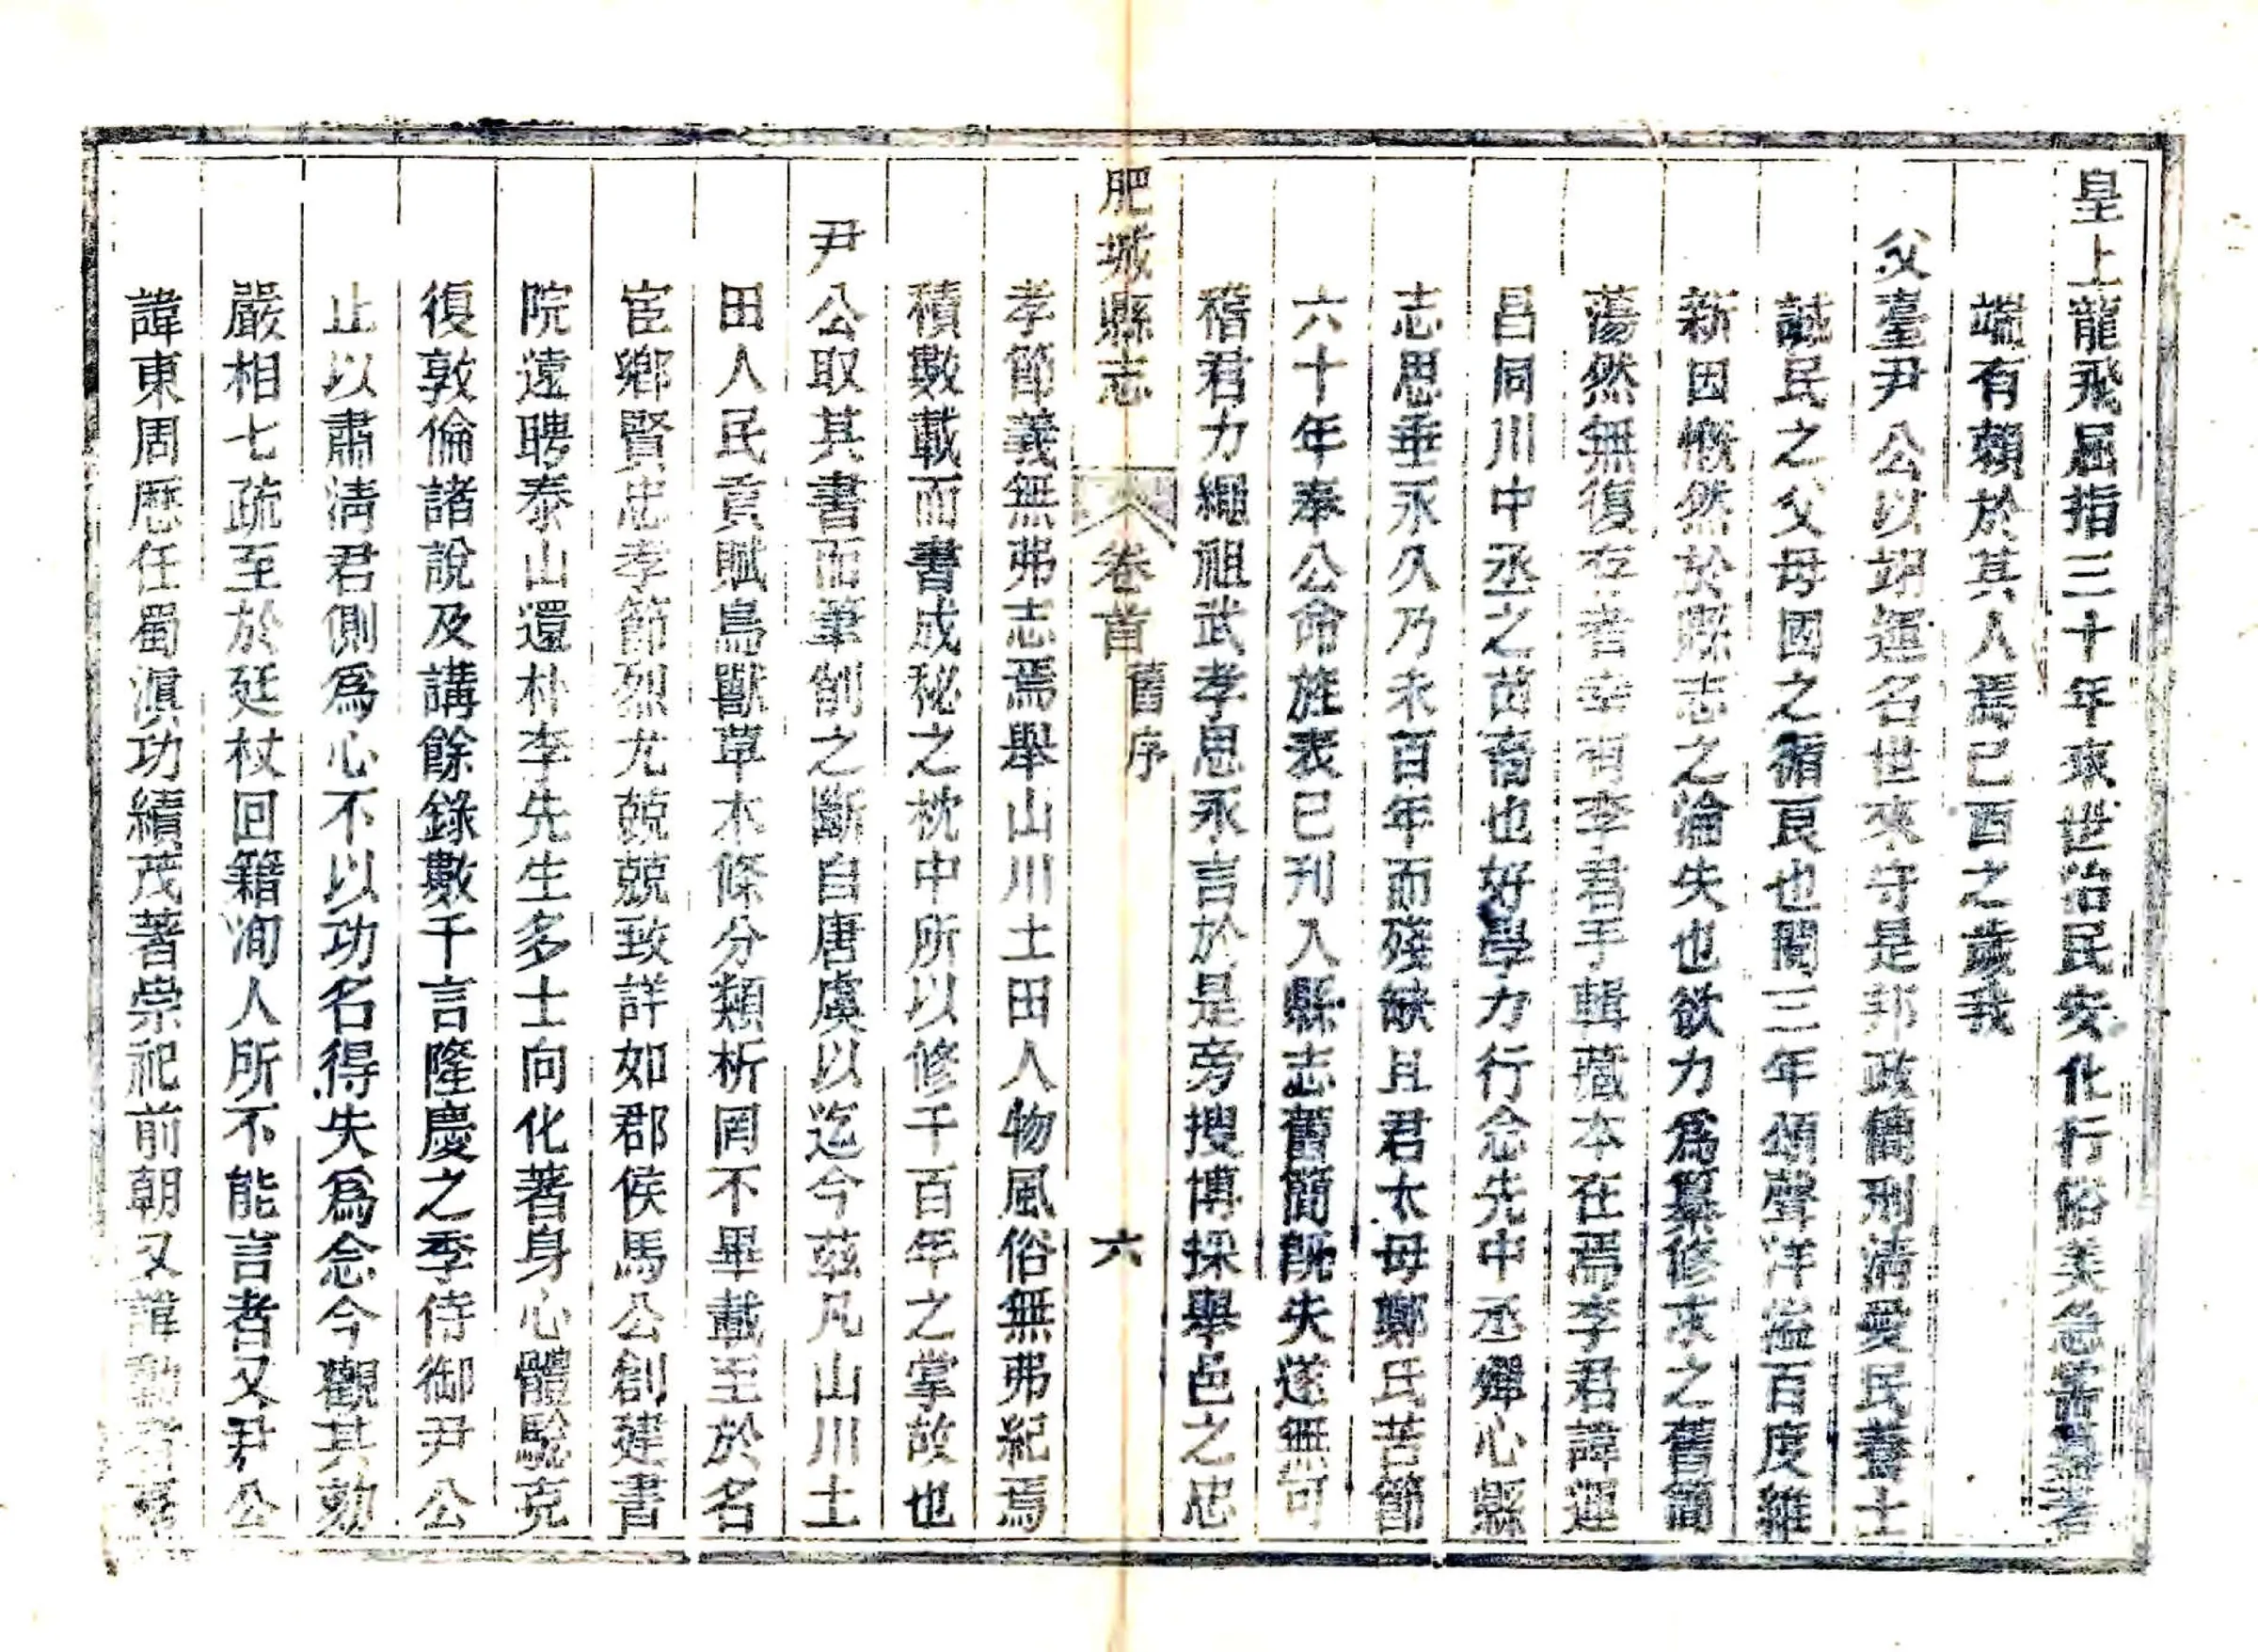 皇上龍飛屈指三十年來世治民安化行俗美急當纂著
端有賴於其人焉己酉之歲我
父臺尹公以翊運名世來守是邦政簡刑清愛民養士
誠民之父母國之循良也閱三年頌聲洋溢百度維
新因慨然於縣志之淪失也欲力爲纂修求之舊簡
蕩然無復存者幸有李君手輯藏本在焉李君諱運
昌同川中丞之苗裔也好學力行念先中丞殫心縣
志思垂永久乃未百年而殘缺且君太母鄭氏苦節
六十年奉公命旌表已刊入縣志舊簡既失遂無可
稽君力繩祖武孝思永言於是旁搜博採舉邑之忠
肥城縣志 卷首 舊序 六
孝節義無弗志焉舉山川土田人物風俗無弗紀焉
積數載而書成秘之枕中所以修千百年之掌故也
尹公取其書而筆削之斷自唐虞以迄今茲凡山川土
田人民貢賦鳥獸草木條分類析罔不畢載至於名
宦鄉賢忠孝節烈尤兢兢致詳如郡侯馬公創建書
院遠聘泰山還朴李先生多士向化著身心體驗克
復敦倫諸說及講餘錄數千言隆慶之季侍御尹公
止以肅清君側爲心不以功名得失爲念今觀其劾
嚴相七疏至於廷杖回籍洵人所不能言者又尹公
諱東周歷任蜀滇功績茂著崇祀前朝又諱勳者